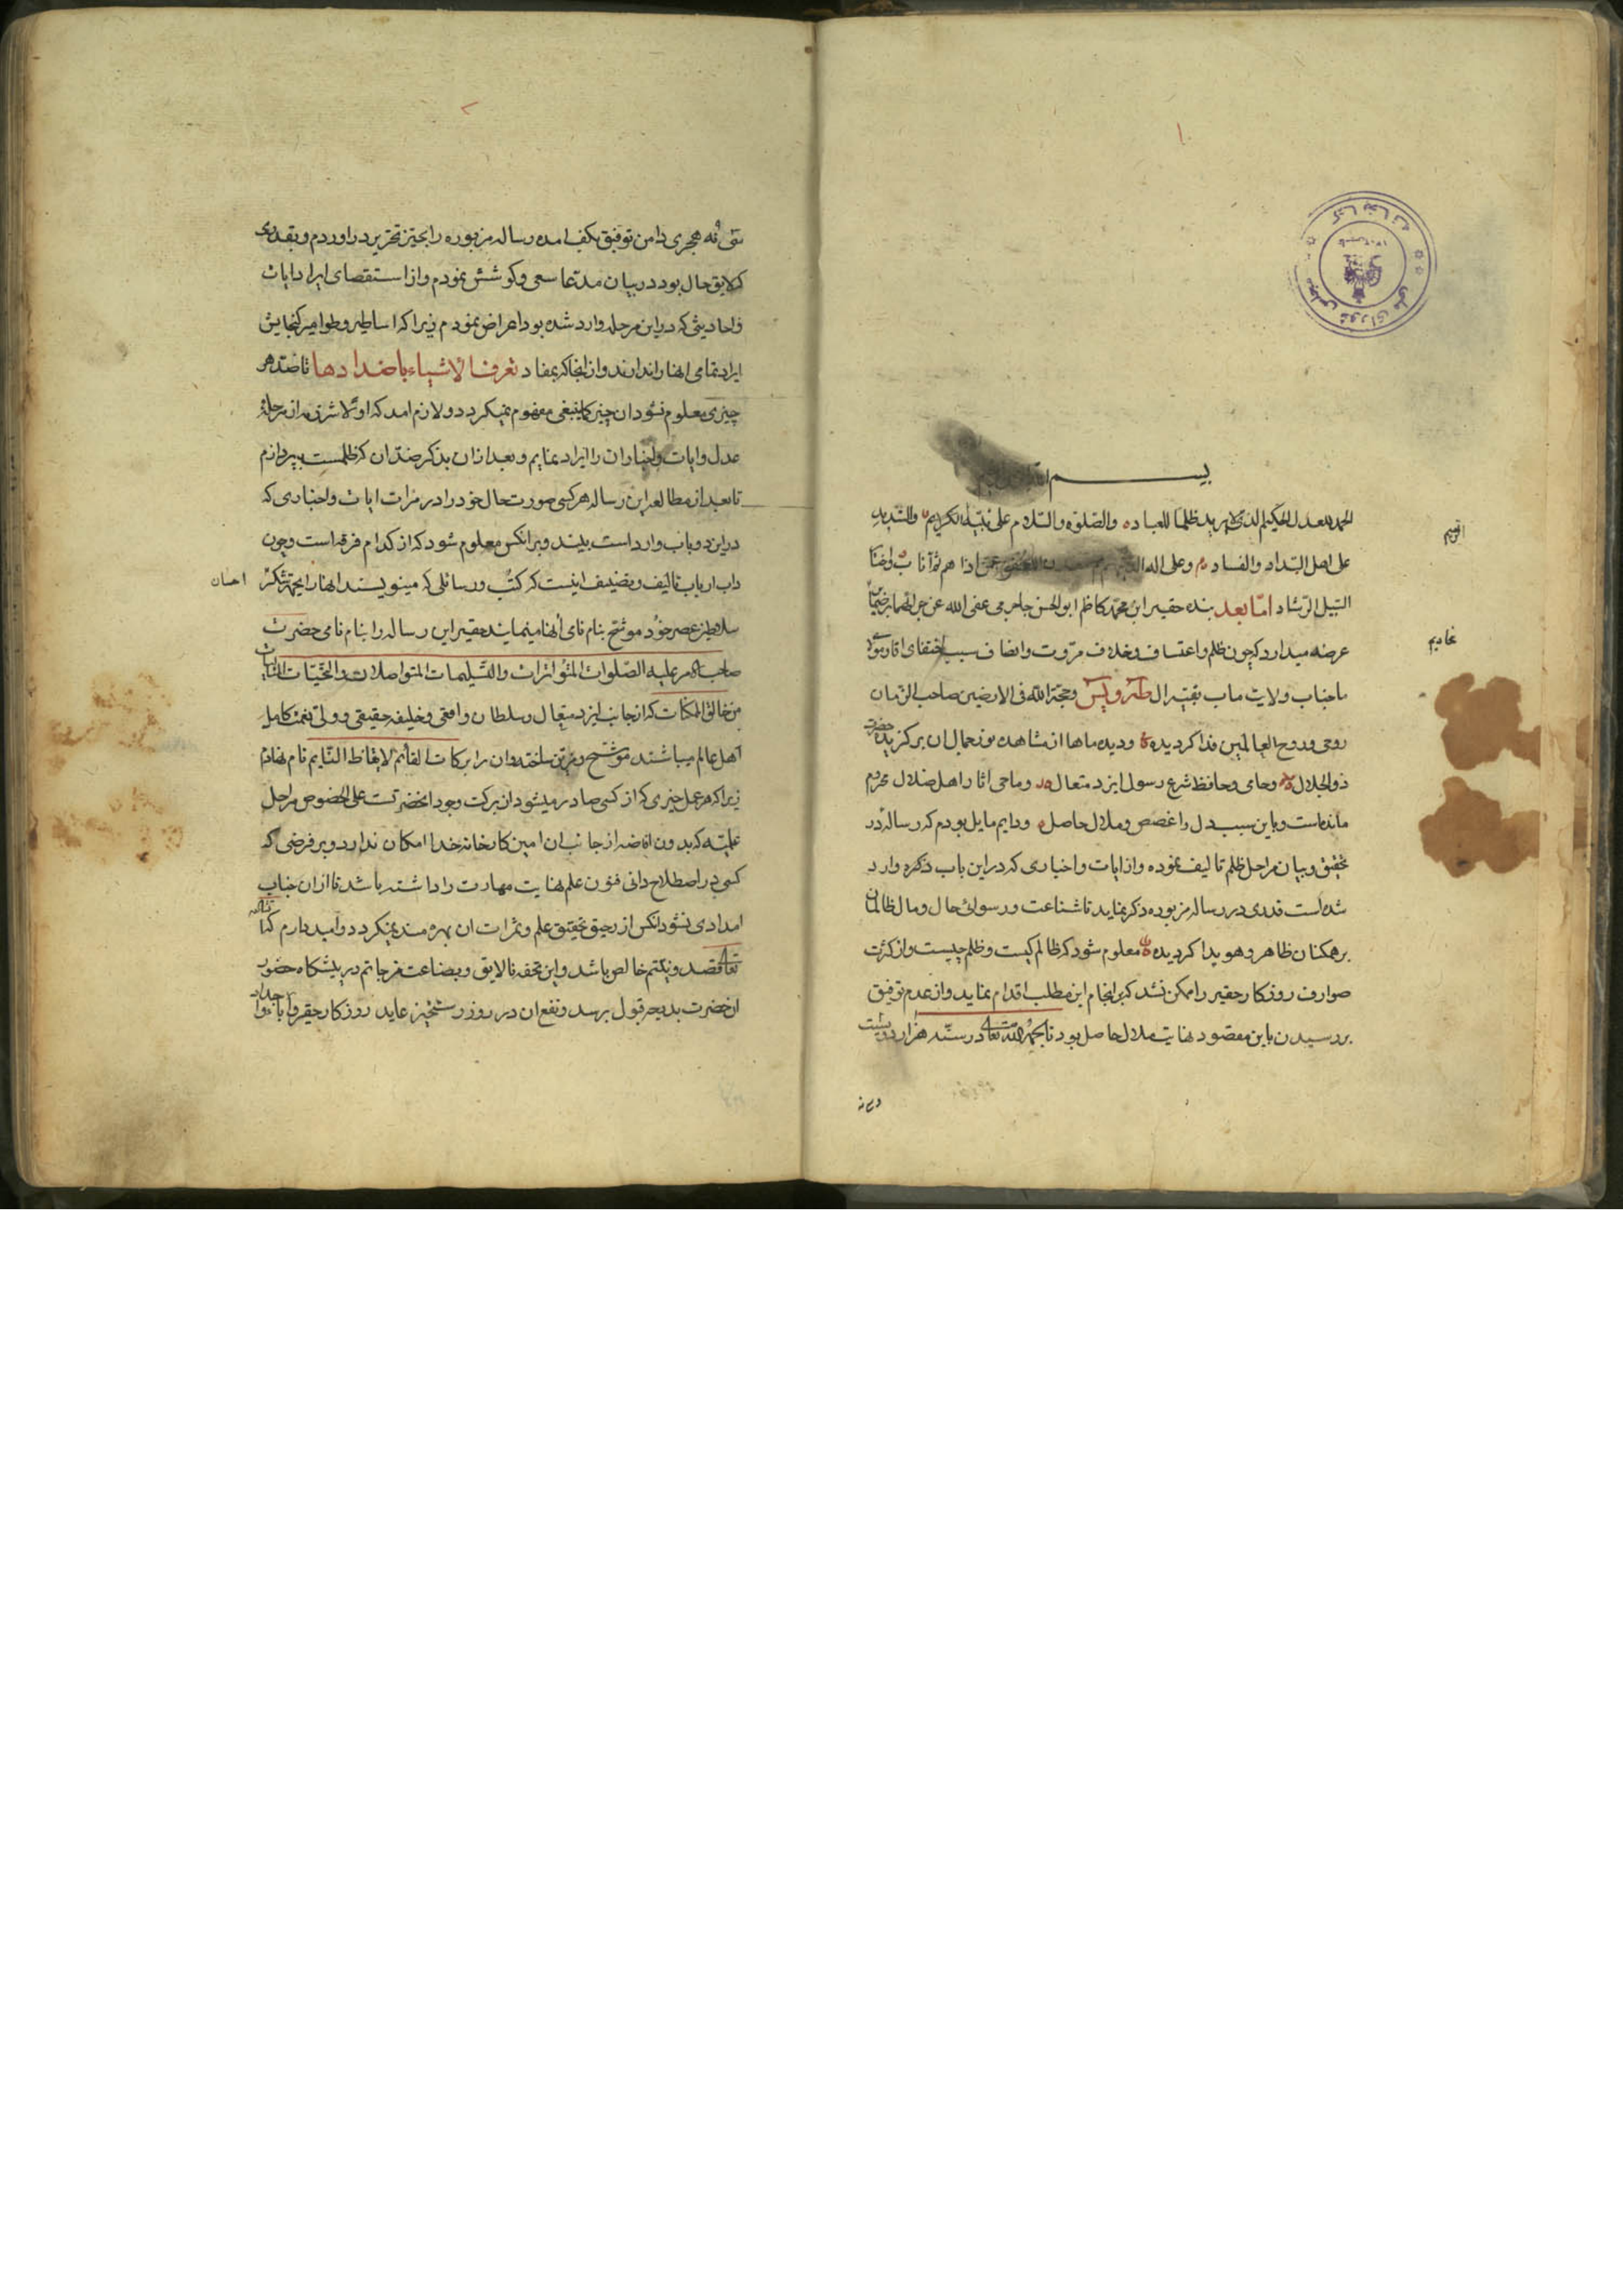 بسم الله
الحمد لله العدل الحکیم الذی لا یرید ظلما للعباد والصلوة والسلام علی نبیه الکریم والشدید
علی اهل البداد والفساد وعلی اله
السبیل الرشاد اما بعد بنده حقیر ابن محمد کاظم ابو الحسن جاجرمی عفی الله عن جرائمهما
عرضه میدارد که چون ظلم واعتساف وخلاف مروت وانصاف سبب اختفای اقا ومولای
ما جناب ولایت ماب بقیه ال طه ویس وحجة الله فی الارضین صاحب الزمان
روحی وروح العالمین فداه کردیده ودیده ماها از مشاهده نور جمال ان برکزیده حضرت
ذوالجلال وحامی وحافظ شرع رسول ایزد متعال وماحی اثار اهل ضلال محروم
مانده است وباین سبب دل را غصص وملال حاصل ودایم مایل بودم که رساله در
تحقیق وبیان مراحل ظلم تالیف نموده واز ایات واخباری که در این باب ذکر وارد
شده است قدری در رساله مزبوره ذکر نماید تا شناعت ورسوائی حال ومال ظالمان
بر همکنان ظاهر وهویدا کردیده معلوم شود که ظالم کیست وظلم چیست واز کثرت
صوارف روزکار حقیر را ممکن نشد که بر انجام این مطلب اقدام نماید واز عدم توفیق
بر رسیدن باین مقصود نهایت ملال حاصل بود تا بحمد الله تعالی در سنه هزار دویست
وسی نه
سی نه هجری دامن توفیق بکف امده رساله مزبوره را بحیز تحریر در اوردم وبقدری
که لایق حال بود در بیان مدعا سعی وکوشش نمودم واز استقصای ایراد ایات
واحادیثی که در این مرحله وارد شده بود اعراض نمودم زیرا که اساطیر وطوامیر کنجایش
ایراد تمامی انها را ندارند واز انجا که بمفاد تعرف الاشیاء باضدادها تا ضد هر
چیزی معلوم نشود ان چیز کما ینبغی مفهوم نمیکردد ولازم امد که اولا شرذمه از مرحله
عدل وایات واخبار ان را ایراد نمایم وبعد از ان بذکر ضد ان که ظلمست بپردازم
تا بعد از مطالعه این رساله هر کسی صورت حال خود را در مرات ایات واخباری که
در این دو باب وارد است ببیند وبر انکس معلوم شود که از کدام فرقه است وچون
داب ارباب تالیف وتصنیف اینست که کتب ورسائلی که مینویسند انها را بجهة تشکر
احسان
سلاطین عصر خود موشح بنام نامی انها مینمایند حقیر این رساله را بنام نامی حضرت
صاحب الامر علیه الصلوات المتواترات والتسلیمات المتواصلات والتحیات
من خالق الممکنات که از جانب ایزد متعال سلطان واقعی وخلیفه حقیقی وولی نعمت کامل
اهل عالم میباشند موشح ومزین ساخته وان را برکات القائم لایقاظ النایم نام نهادم
زیرا که هر عمل خیری که از کسی صادر میشود از برکت وجود انحضرتست علی الخصوص مراحل
علمیه که بدون افاضه از جانب ان امین کارخانه خدا امکان ندارد وبر فرضی که
کسی در اصطلاح دانی فنون علم نهایت مهارت را داشته باشد تا از ان جناب
امدادی نشود انکس از رحیق تحقیق علم وثمرات ان بهره مند نمیکردد وامیدوارم
تعالی قصد ونیتم خالص باشد واین تحفه نالایق وبضاعت مزجاتم در پیشکاه حضور
ان حضرت بدرجه قبول برسد ونفع ان در روز رستخیز عاید روزکار حقیر